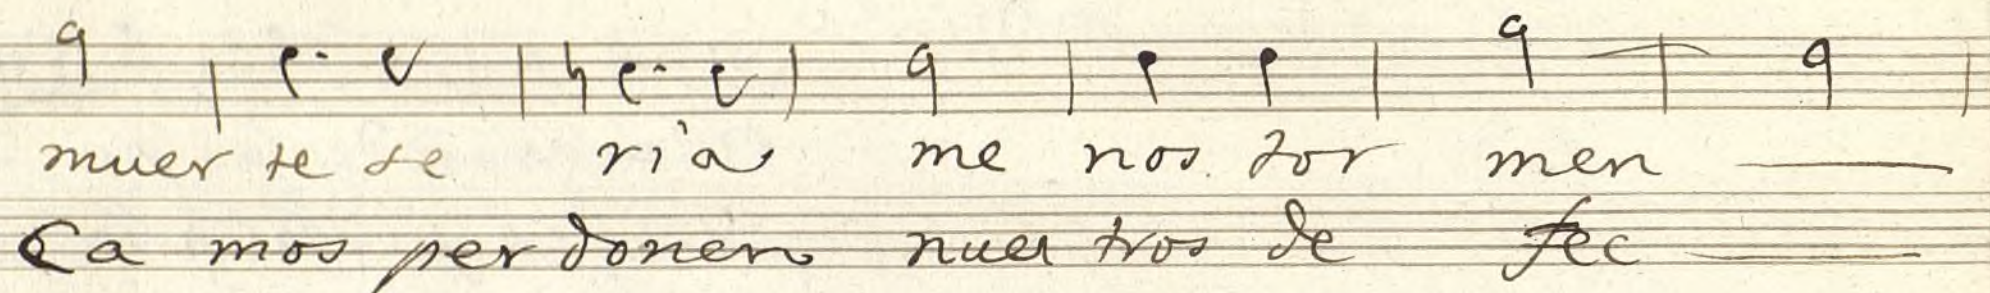 muer te se ria me nos tor men
Ca mos per donen nues tros de fec